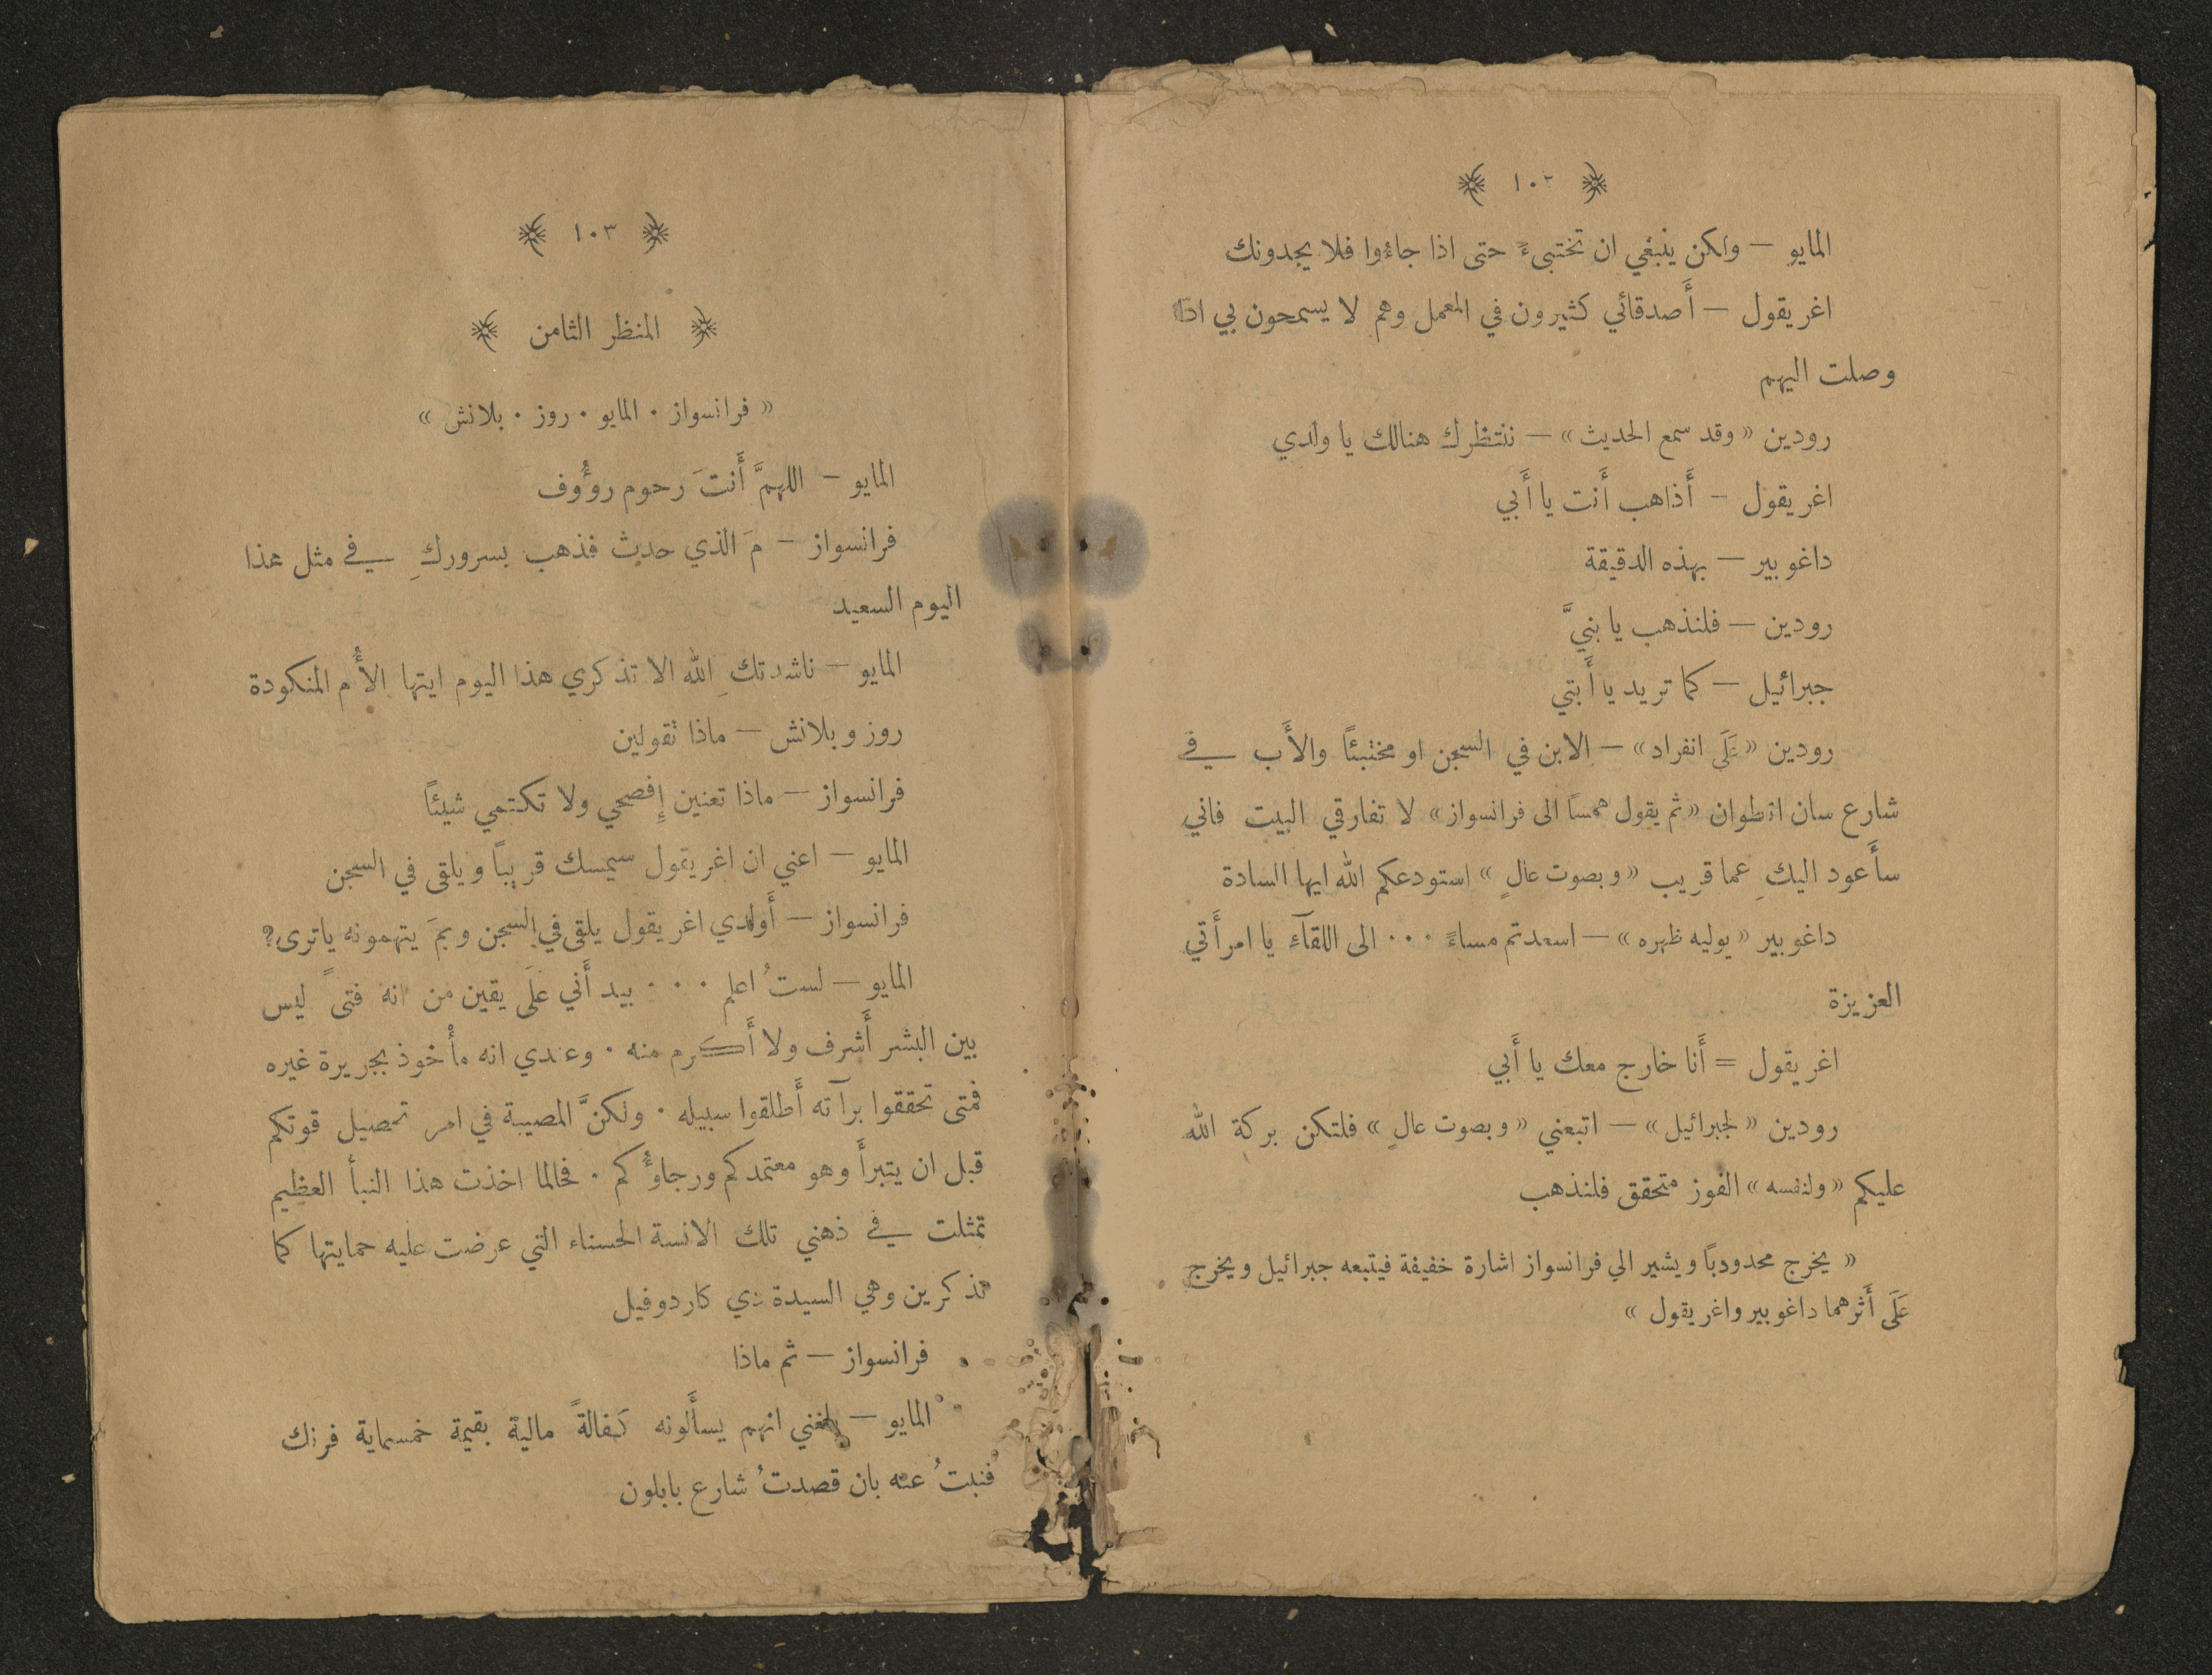 ﴿ ١٠٢ ﴾
المايو — ولكن ينبغي ان تختبىءَ حتى اذا جاءوا فلا يجدونك
اغريقول — أَصدقائي كثيرون في المعمل وهم لا يسمحون بي اذا
وصلت اليهم
رودين «وقد سمع الحديث» — ننتظرك هنالك يا ولدي
اغريقول — أَذاهب أَنت يا أَبي
داغوبير — بهذه الدقيقة
رودين — فلنذهب يا بنيَّ
جبرائيل — كما تريد يا أَبتي
رودين «عَلَى انفراد» — الابن في السجن او مختبئاً والأَب في
شارع سان انطوان «ثم يقول همساً الى فرانسواز» لا تفارقي البيت فاني
سأَعود اليكِ عما قريب «وبصوت عالٍ» استودعكم الله ايها السادة
داغوبير «يوليه ظهره» — اسعدتم مساءً ٠٠٠ الى اللقآءِ يا امرأَتي
العزيزة
اغريقول = أَنا خارج معك يا أَبي
رودين «لجبرائيل» — اتبعني «وبصوت عالٍ» فلتكن بركة الله
عليكم «ولنفسه» الفوز متحقق فلنذهب
« يخرج محدودباً ويشير الي فرانسواز اشارة خفيفة فيتبعه جبرائيل ويخرج
عَلَى أَثرهما داغوبير واغريقول »
﴿ ١٠٣ ﴾
﴿ المنظر الثامن ﴾
« فرانسواز ٠ المايو ٠ روز ٠ بلانش »
المايو — اللهمَّ أَنتَ رحوم روؤُوف
فرانسواز — مَ الذي حدث فذهب بسروركِ في مثل هذا
اليوم السعيد
المايو — ناشدتكِ الله الا تذكري هذا اليوم ايتها الأُم المنكودة
روز وبلانش — ماذا تقولين
فرانسواز — ماذا تعنين إِفصحي ولا تكتمي شيئاً
المايو — اعني ان اغريقول سيمسك قريباً ويلقى في السجن
فرانسواز — أَولدي اغريقول يلقى في السجن وبمَ يتهمونه ياترى؟
المايو — لستُ اعلم ٠٠٠ بيد أَني عَلَى يقين من انه فتىً ليس
بين البشر أَشرف ولا أَكرم منه ٠ وعندي انه مأْخوذ بجريرة غيره
فمتى تحققوا برآته أَطلقوا سبيله ٠ ولكنَّ المصيبة في امر تحصيل قوتكم
قبل ان يتبرأَ وهو معتمدكم ورجاوءُكم ٠ فحالما اخذت هذا النبأ العظيم
تمثلت في ذهني تلك الانسة الحسناء التي عرضت عليه حمايتها كما
تذكرين وهي السيدة دي كاردوفيل
فرانسواز — ثم ماذا
المايو — بلغني انهم يسأَلونه كفالةً مالية بقيمة خمسماية فرنك
فنبتُ عنه بان قصدتُ شارع بابلون